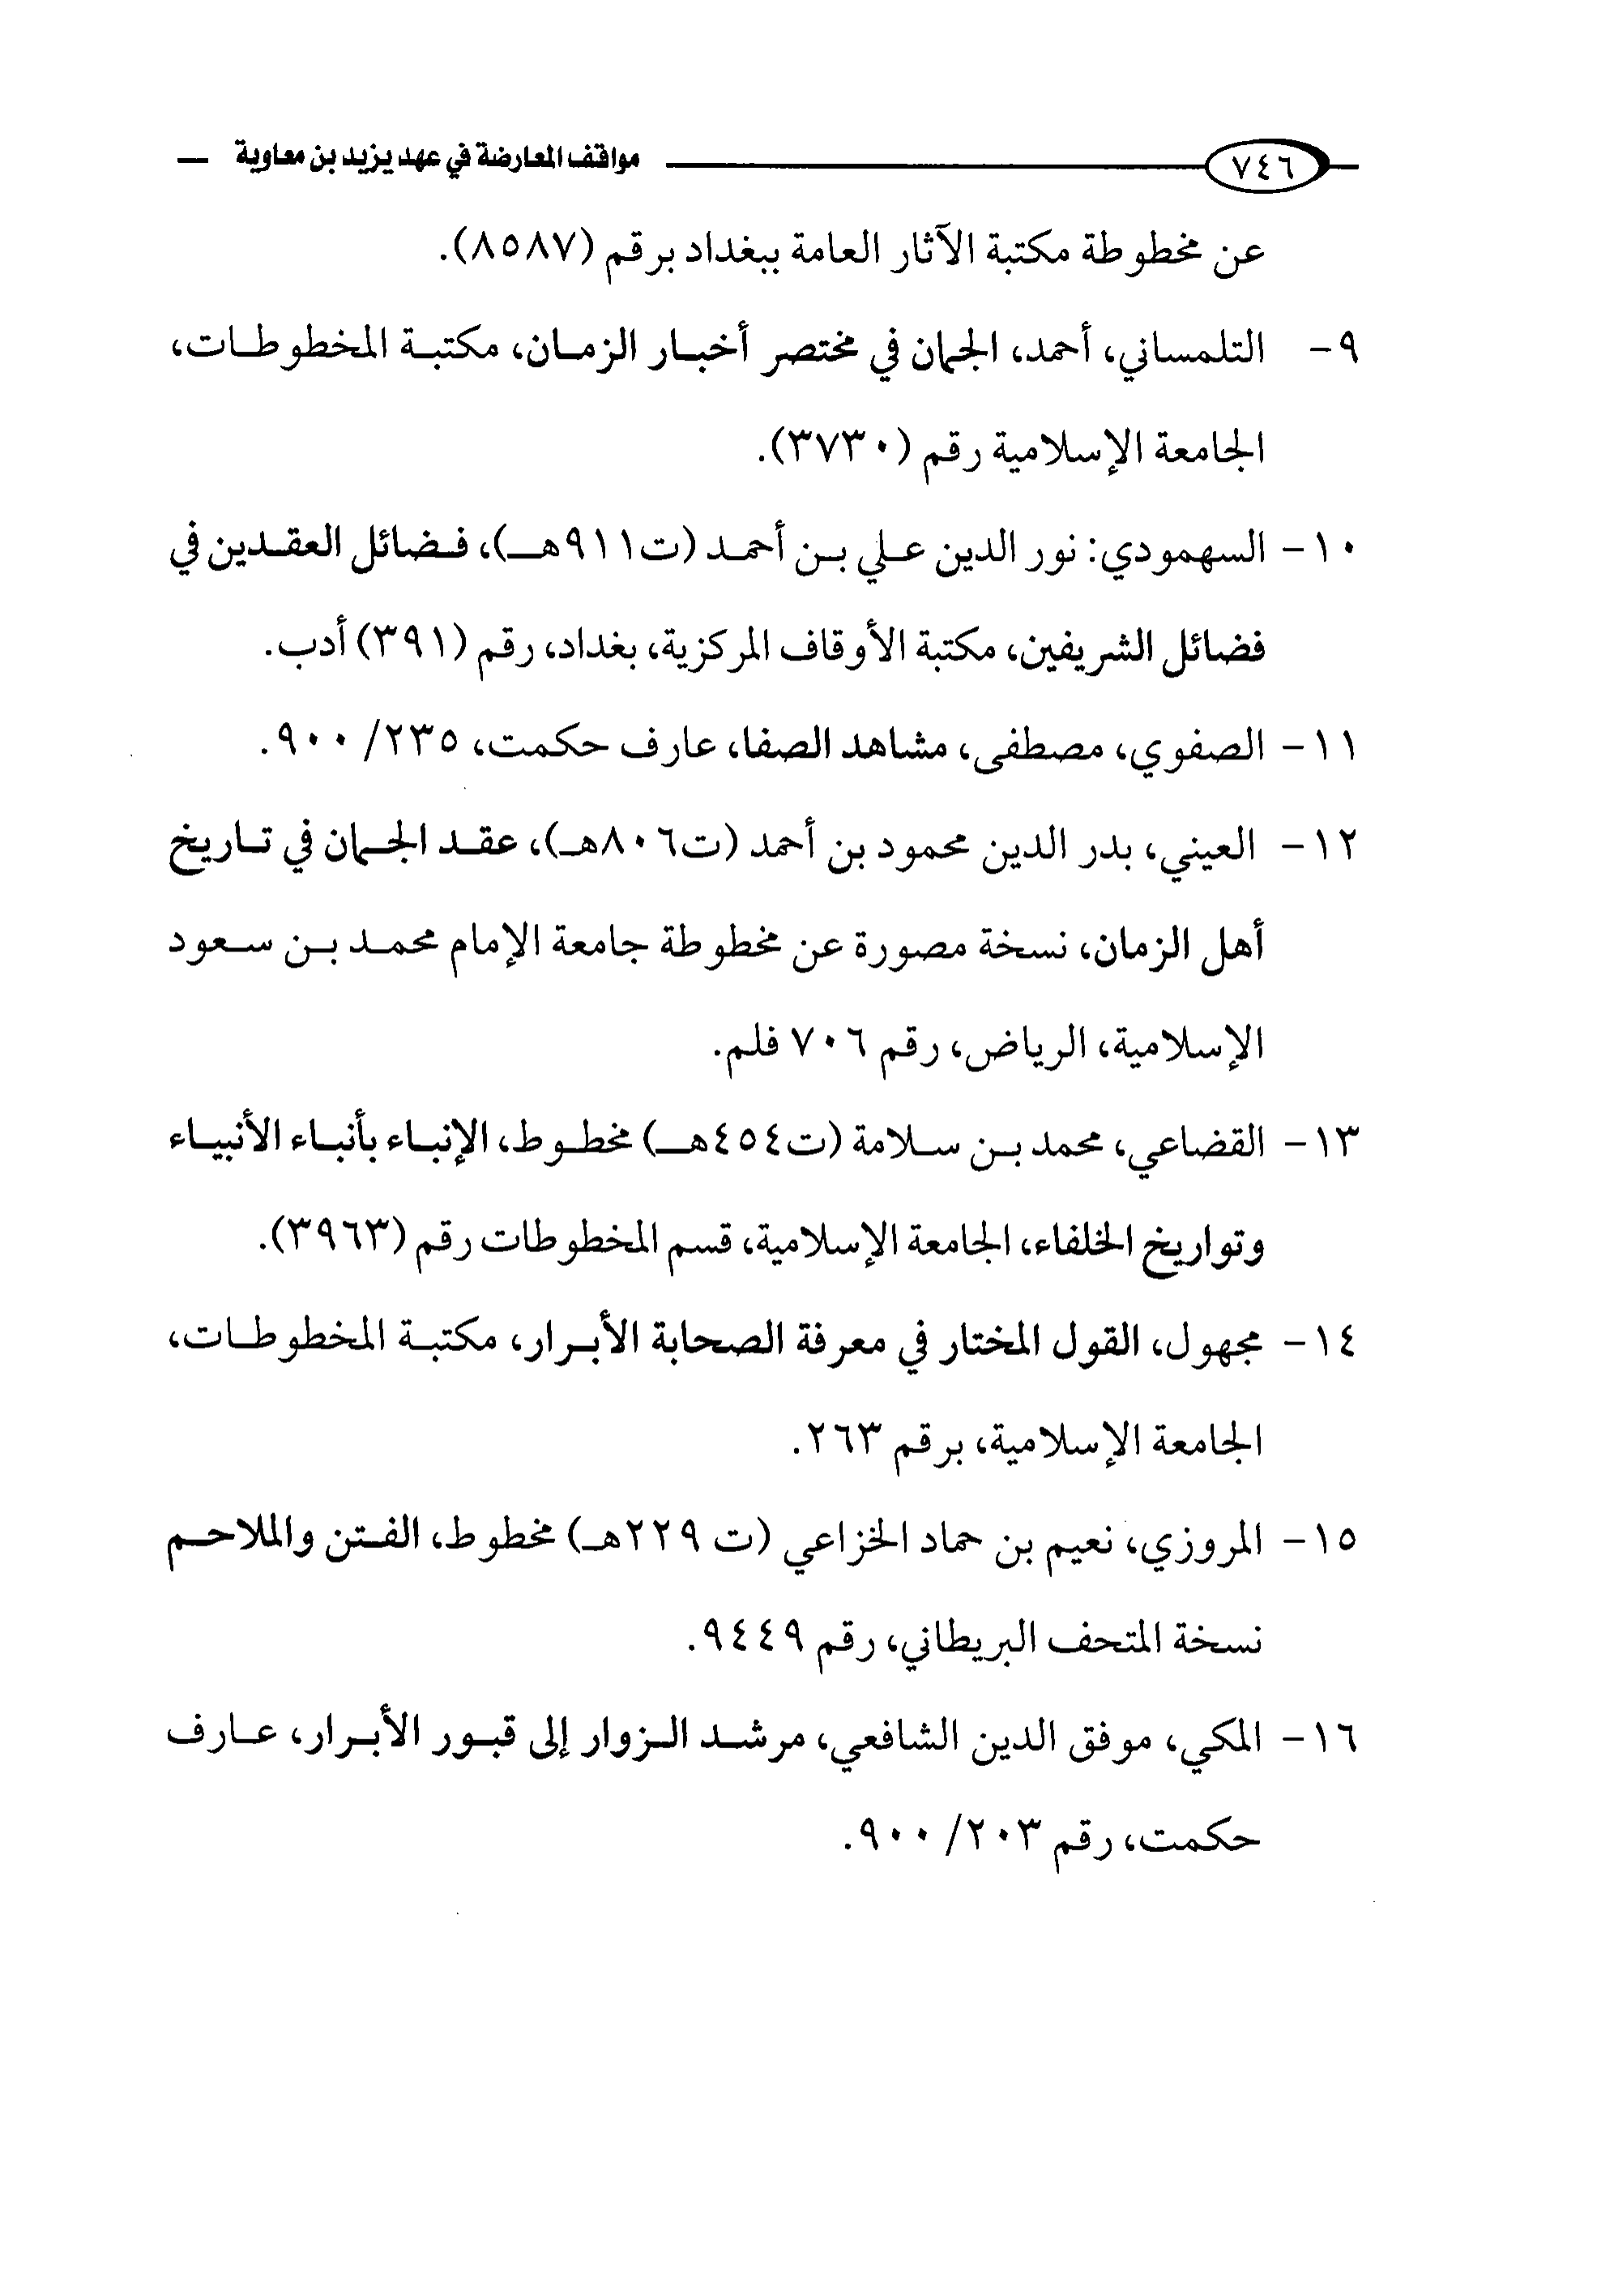 ٧٤٦ مواقف المعارضة في عهد يزيد بن معاوية
عن مخطوطة مكتبة الآثار العامة ببغداد برقم (٨٥٨٧).
٩- التلمساني، أحمد، الجمان في مختصر أخبار الزمان، مكتبة المخطوطات،
الجامعة الإسلامية رقم (٣٧٣٠).
١٠- السهمودي: نور الدين علي بن أحمد (ت٩١١هـ)، فضائل العقدين في
فضائل الشريفين، مكتبة الأوقاف المركزية، بغداد، رقم (٣٩١) أدب.
١١- الصفوي، مصطفى، مشاهد الصفا، عارف حكمت، ٢٣٥/ ٩٠٠.
١٢- العيني، بدر الدين محمود بن أحمد (ت٨٠٦هـ)، عقد الجمان في تاريخ
أهل الزمان، نسخة مصورة عن مخطوطة جامعة الإمام محمد بن سعود
الإسلامية، الرياض، رقم ٧٠٦ فلم.
١٣- القضاعي، محمد بن سلامة (ت٤٥٤هـ) مخطوط، الإنباء بأنباء الأنبياء
وتواريخ الخلفاء، الجامعة الإسلامية، قسم المخطوطات رقم (٣٩٦٣).
١٤- مجهول، القول المختار في معرفة الصحابة الأبرار، مكتبة المخطوطات،
الجامعة الإسلامية، برقم ٢٦٣.
١٥- المروزي، نعيم بن حماد الخزاعي (ت ٢٢٩هـ) مخطوط، الفتن والملاحم
نسخة المتحف البريطاني، رقم ٩٤٤٩.
١٦- المكي، موفق الدين الشافعي، مرشد الزوار إلى قبور الأبرار، عارف
حكمت، رقم ٢٠٣/ ٩٠٠.